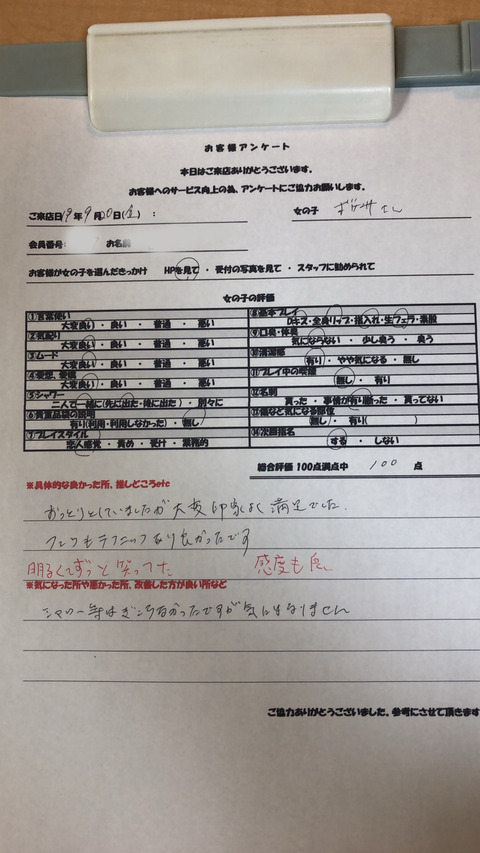 お客様アンケート
本日はご来店ありがとうございます。
お客様へのサービス向上の為、アンケートにご協力お願いします。
ご来店日 19年 9月20日(金) : 女の子
会員番号: お名前
お客様が女の子を選んだきっかけ HPを見て ・ 受付の写真を見て ・ スタッフに勧められて
女の子の評価
①言葉使い
大変良い ・ 良い ・ 普通 ・ 悪い
②気配り
大変良い ・ 良い ・ 普通 ・ 悪い
③ムード
大変良い ・ 良い ・ 普通 ・ 悪い
④愛想、愛嬌
大変良い ・ 良い ・ 普通 ・ 悪い
⑤シャワー
二人で一緒に(先に出た・後に出た) ・ 別々に
⑥貴重品袋の説明
有り(利用・利用しなかった) ・ 無し
⑦プレイスタイル
恋人感覚 ・ 責め ・ 受け ・ 業務的
⑧基本プレイ
Dキス・全身リップ・指入れ・生フェラ・素股
⑨口臭・体臭
気にならない ・ 少し臭う ・ 臭う
⑩清潔感
有り ・ やや気になる ・ 無し
⑪プレイ中の喫煙
無し ・ 有り
⑫名刺
貰った ・ 事情が有り断った ・ 貰ってない
⑬傷など気になる部位
無し ・ 有り( )
⑭次回指名
する ・ しない
総合評価 100点満点中 100 点
※具体的な良かった所、推しどころetc
おっとりとしていましたが大変印象よく満足でした。
フェラもテクニックあり良かったです
明るくてずっと笑ってた 感度も良
※気になった所や悪かった所、改善した方が良い所など
シャワー等はぎこちなかったですが気になりません
ご協力ありがとうございました。参考にさせて頂きます